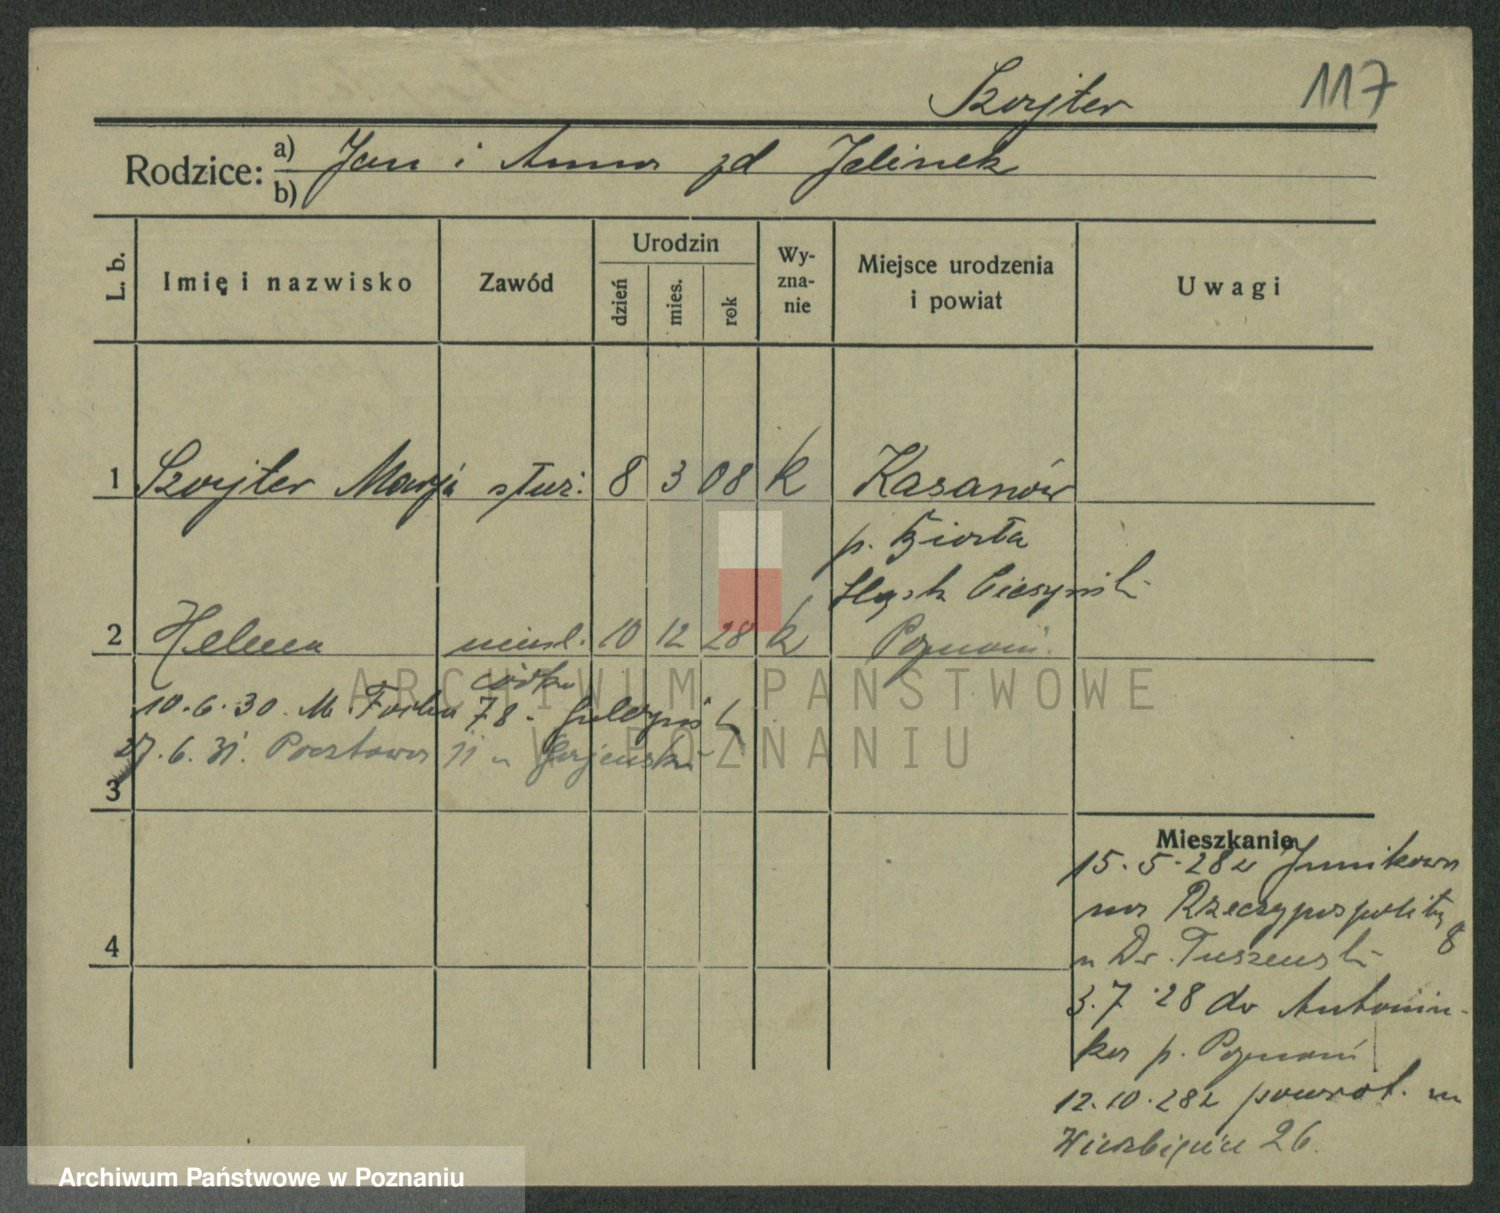 Szojter 117
Rodzice: a) Jan i Anna zd Jelinek
b)
L. b. Imię i nazwisko Zawód Urodzin dzień mies. rok Wy-zna-nie Miejsce urodzenia i powiat Uwagi
1 Szojter Marja służ. 8 3 08 k Kasanów
p.
Śląsk Cieszyńsk
2 Helena nieśl. 10 12 28 k Poznań
córka
10.6.30. M. Focha 78
27.6.31. Pocztowa 11 u
3
Mieszkanie
15.5.28 z Junikowa
na Rzeczypospolitej 8
4
u Dr. Tuszewsk
3.7.28 do Antonin-
ka p. Poznań
12.10.28 z powrot. na
Wierzbięcice 26.
ARCHIWUM PAŃSTWOWE
W POZNANIU
Archiwum Państwowe w Poznaniu